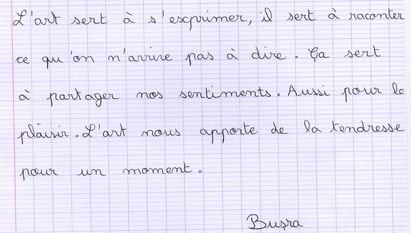 L'art sert à s'exprimer, il sert à raconter
ce qu'on n'arrive pas à dire. Ça sert
à partager nos sentiments. Aussi pour le
plaisir. L'art nous apporte de la tendresse
pour un moment.
Buşra